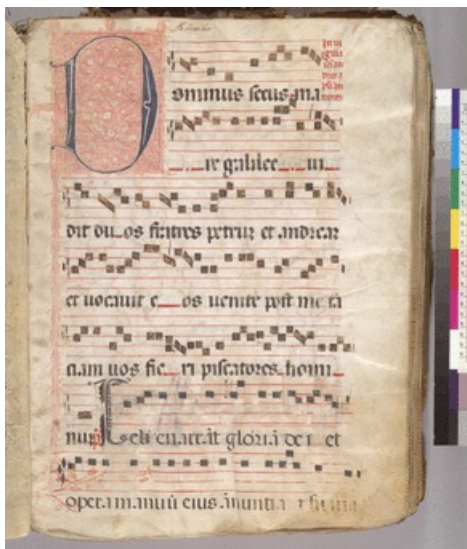 Dominus secus ma
re galilee ui
dit du os fratres petrum et andream
et uocauit e os uenite post me fa
ciam uos fie ri piscatores homi
num Celi enarrāt gloriā dei et
opera manuū eius ānuntia